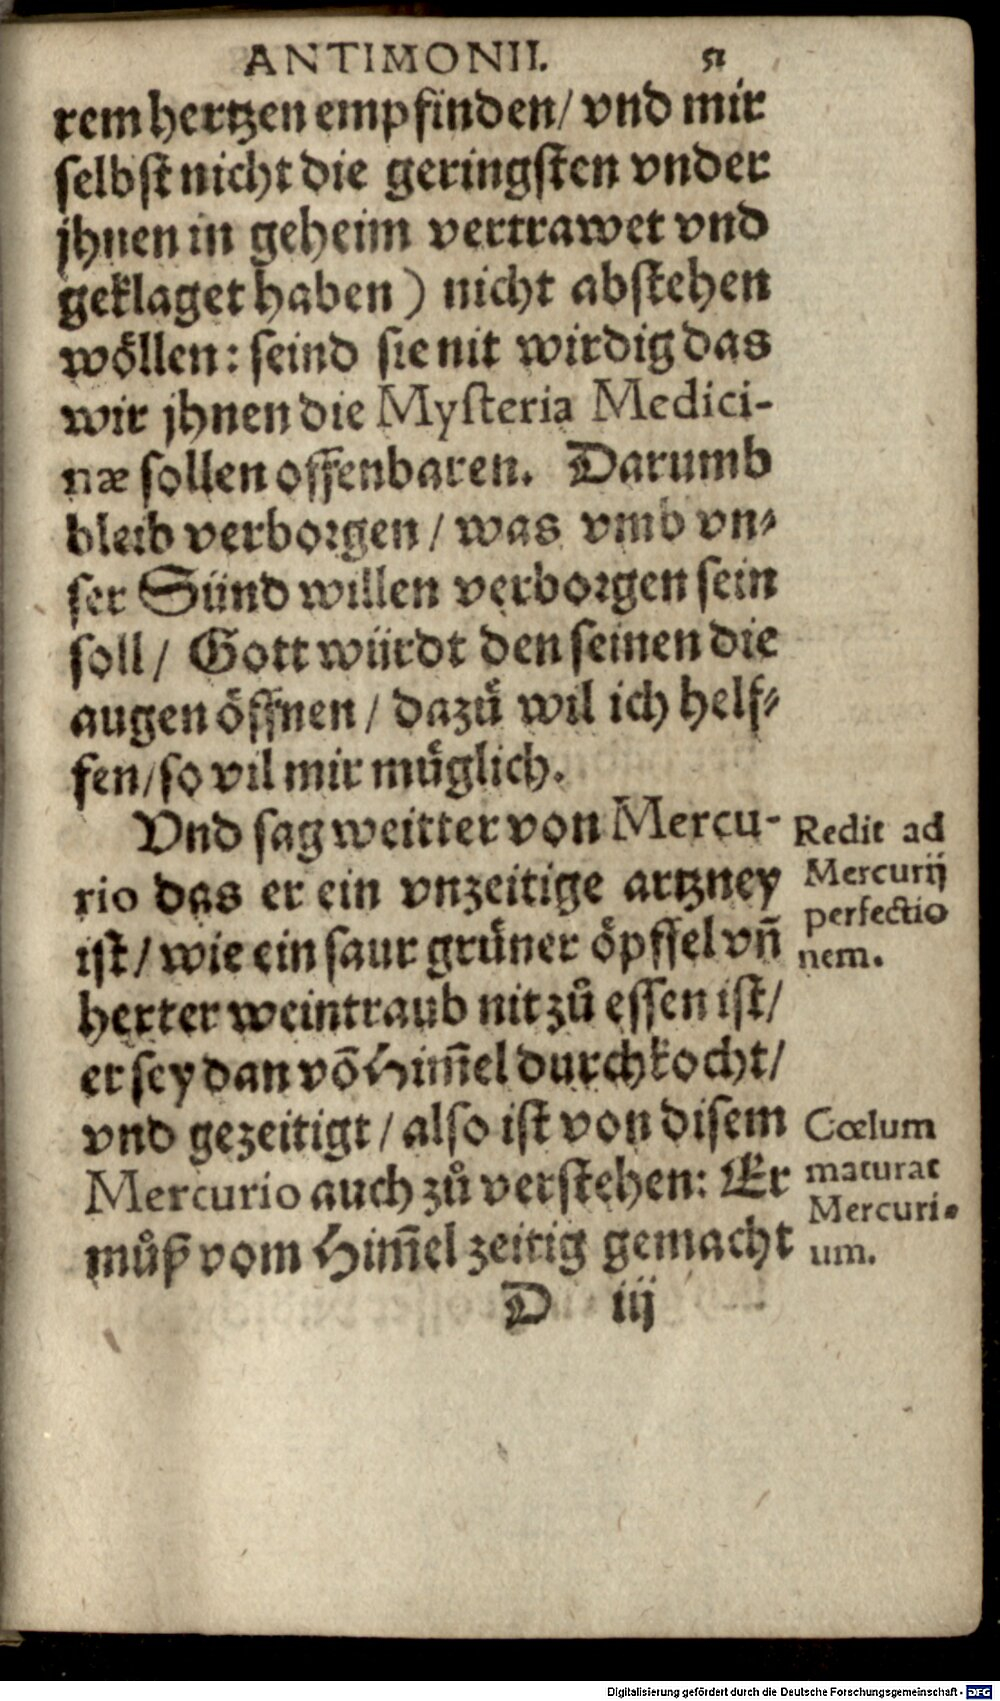 ANTIMONII. 51
rem hertzen empfinden/ vnd mir
selbst nicht die geringsten vnder
jhnen in geheim vertrawet vnd
geklaget haben) nicht abstehen
wöllen: seind sie nit wirdig das
wir jhnen die Mysteria Medici-
næ sollen offenbaren. Darumb
bleib verborgen / was vmb vn-
ser Sünd willen verborgen sein
soll/ Gott würdt den seinen die
augen öffnen / dazů wil ich helf-
fen/ so vil mir müglich.
Vnd sag weitter von Mercu-
rio das er ein vnzeitige artzney
ist / wie ein saur grüner öpffel vn̄
herter weintraub nit zů essen ist/
er sey dan vō Him̄el durchkocht/
vnd gezeitigt / also ist von disem
Mercurio auch zů verstehen: Er
můß vom Him̄el zeitig gemacht
D iij
Redit ad
Mercurij
perfectio
nem.
Cœlum
maturat
Mercuri-
um.
Digitalisierung gefördert durch die Deutsche Forschungsgemeinschaft - DFG